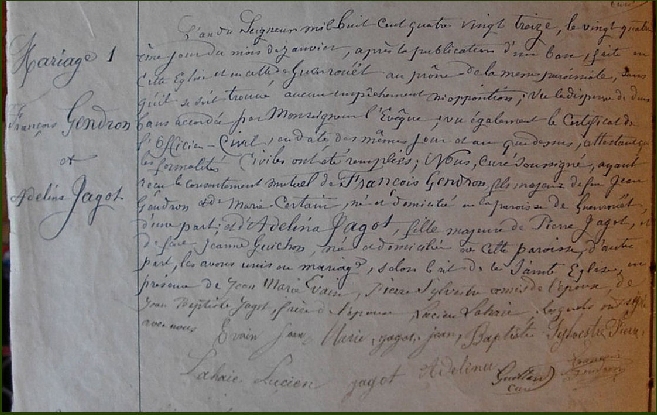 Mariage 1
François Gendron
et
Adelina Jagot.
L'an du Seigneur mil huit cent quatre vingt treize, le vingt quatr
ème jour du mois de janvier, après la publication d'un ban, fait en
cette Eglise et en celle de Guenrouët au prône de la messe paroissiale, sans
qu'il se soit trouvé aucun empêchement ni opposition; vu la dispense de deux
bans accordée par Monseigneur l'Evêque; vu également le Certificat de
l'Officier-Civil, en date des mêmes jour et an que dessus, attestant que
les formalités Civiles ont été remplies; Nous, curé soussigné, ayant
reçu le consentement mutuel de François Gendron, fils majeur de feu Jean
Gendron et de Marie Certain, né et domicilié en la paroisse de Guenrouët,
d'une part; et d'Adelina Jagot, fille majeure de Pierre Jagot, et
de feue Jeanne Guichon, née et domiciliée en cette paroisse, d'autre
part, les avons unis en mariage, selon le rit de la Sainte Eglise, en
présence de Jean Marie Evain, Pierre Sylvestre cousin de l'époux, de
Jean Baptiste Jagot, frère de l'épouse, Lucien Lahaie, lesquels ont signé
avec nous Evain Jean Marie, jagot jean, Baptiste Sylvestre Pierre,
Lahaie Lucien jagot Adelina